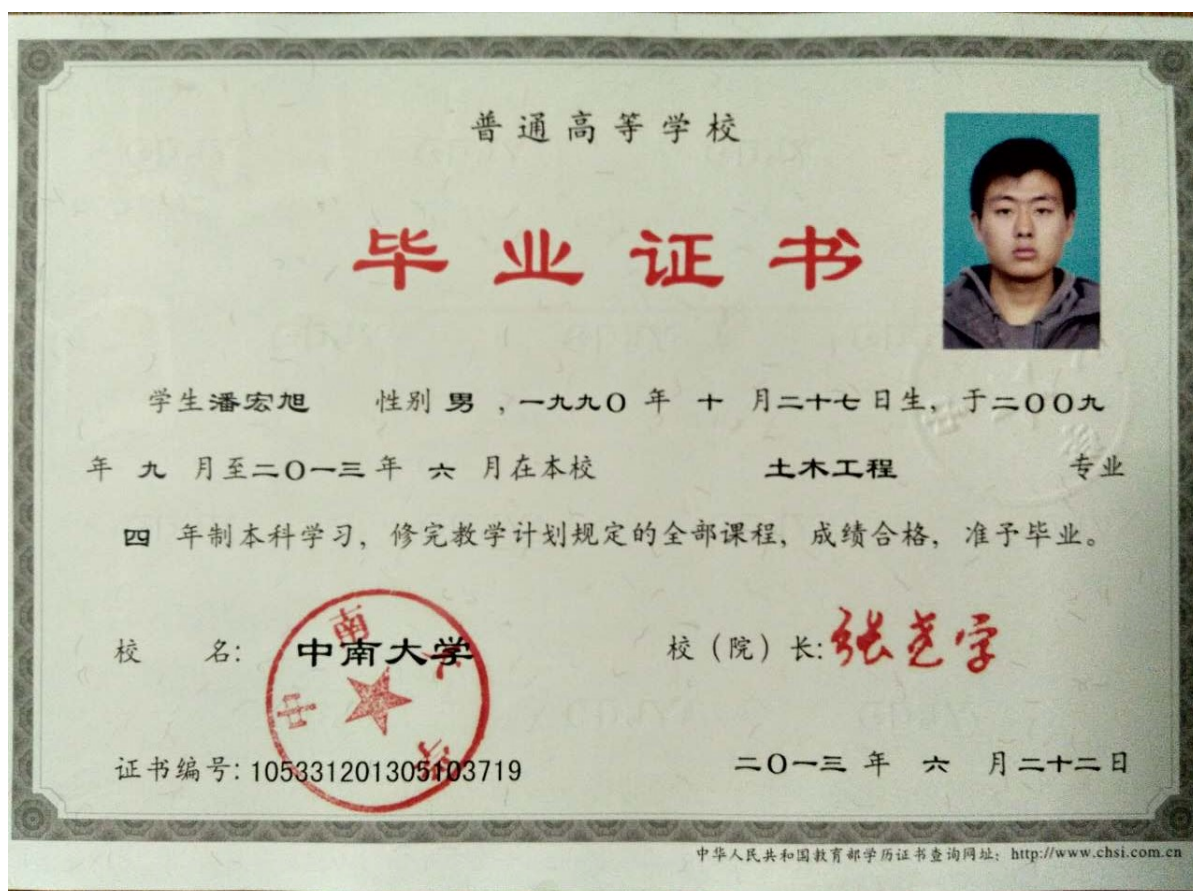 普通高等学校
毕业证书
学生潘宏旭 性别 男 ,一九九〇 年 十 月二十七日生, 于二〇〇九
年 九 月至二〇一三年 六 月在本校 土木工程 专业
四 年制本科学习, 修完教学计划规定的全部课程, 成绩合格, 准予毕业。
校 名: 中南大学 校(院)长: 张尧学
中南大学
证书编号: 105331201305103719 二〇一三 年 六 月二十二日
中华人民共和国教育部学历证书查询网址: http://www.chsi.com.cn